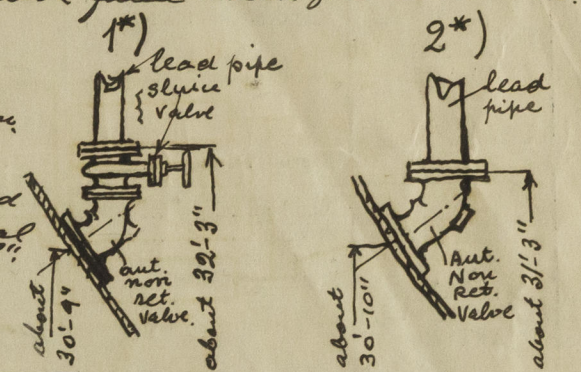 1*)
lead pipe
sluice
valve
aut.
non
ret.
valve.
about
30'-9"
about 32'-3"
2*)
lead
pipe
Aut.
Non
Ret.
Valve
about
30'-10"
about 31'-3"